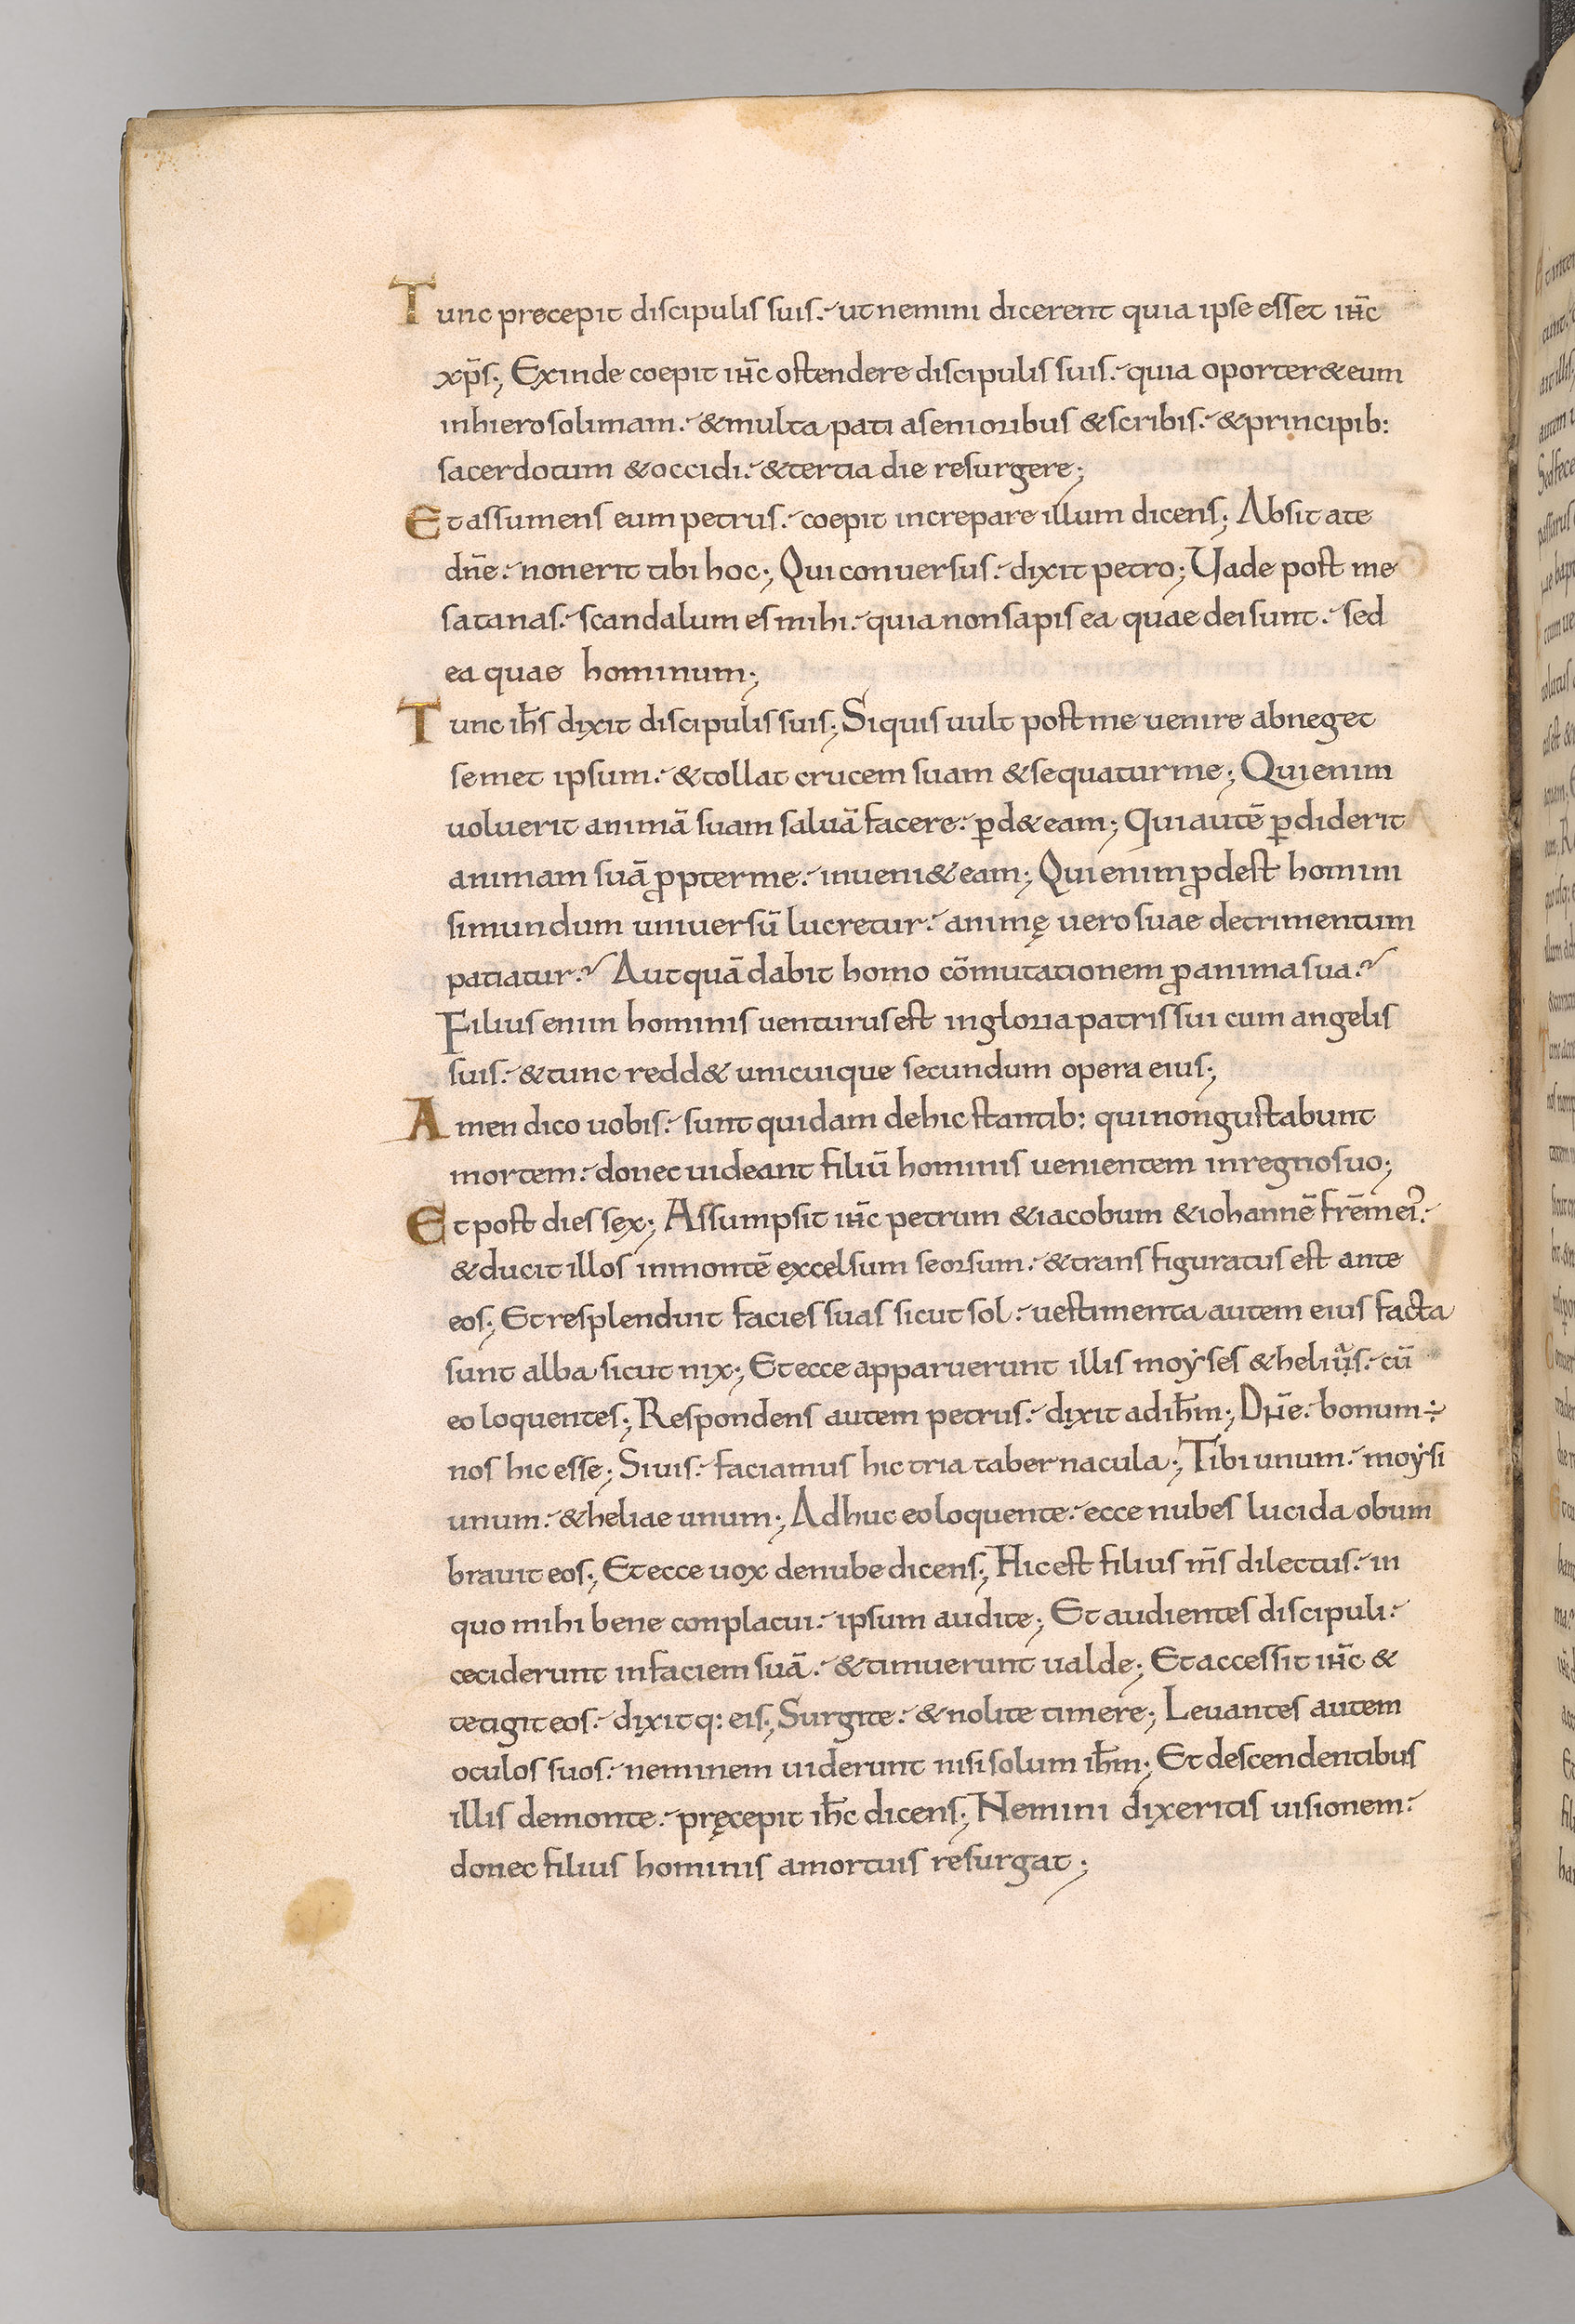 Tunc precepit discipulis suis. ut nemini dicerent quia ipse esset ihc̅
xp̅s; Exinde coepit ihc̅ ostendere discipulis suis. quia oporter& eum
inhierosolimam. & multa pati asenioribus & scribis. & principib:
sacerdotum & occidi. & tertia die resurgere;
Et assumens eum petrus. coepit increpare illum dicens; Absit ate
dn̅e. non erit tibi hoc; Qui conuersus. dixit petro; Uade post me
satanas. scandalum es mihi. quia non sapis ea quae dei sunt. sed
ea quae hominum;
Tunc ih̅s dixit discipulis suis; Siquis uult post me uenire abneget
semet ipsum. & tollat crucem suam & sequatur me; Qui enim
uoluerit animā suam saluā facere. ꝑd& eam; Qui autē ꝑdiderit
animam suā ꝓpter me. inueni& eam; Qui enim ꝓdest homini
si mundum uniuersū lucretur. animę uero suae detrimentum
patiatur? Aut quā dabit homo cōmutationem ꝓ anima sua?
Filius enim hominis uenturus est in gloria patris sui cum angelis
suis. & tunc redd& unicuique secundum opera eius;
Amen dico uobis. sunt quidam dehic stantib: qui non gustabunt
mortem. donec uideant filiū hominis uenientem in regno suo;
Et post dies sex; Assumpsit ihc̅ petrum & iacobum & iohannē frēm ei᾽.
& ducit illos in montē excelsum seorsum. & transfiguratus est ante
eos; Et resplenduit facies suas sicut sol. uestimenta autem eius facta
sunt alba sicut nix; Et ecce apparuerunt illis moẏses & heliuͣs. cū
eo loquentes; Respondens autem petrus. dixit ad ih̅m; Dn̅e. bonum ÷
nos hic esse; Si uis. faciamus hic tria tabernacula; Tibi unum. moẏsi
unum. & heliae unum; Adhuc eo loquente. ecce nubes lucida obum
brauit eos; Et ecce uox denube dicens; Hic est filius m̅s dilectus. in
quo mihi bene conplacui. ipsum audite; Et audientes discipuli.
ceciderunt in faciem suā. & timuerunt ualde; Et accessit ihc̅ &
tetigit eos. dixitq: eis; Surgite. & nolite timere; Leuantes autem
oculos suos. neminem uiderunt nisi solum ih̅m; Et descendentibus
illis demonte. pręcepit ih̅c dicens; Nemini dixeritis uisionem.
donec filius hominis amortuis resurgat;